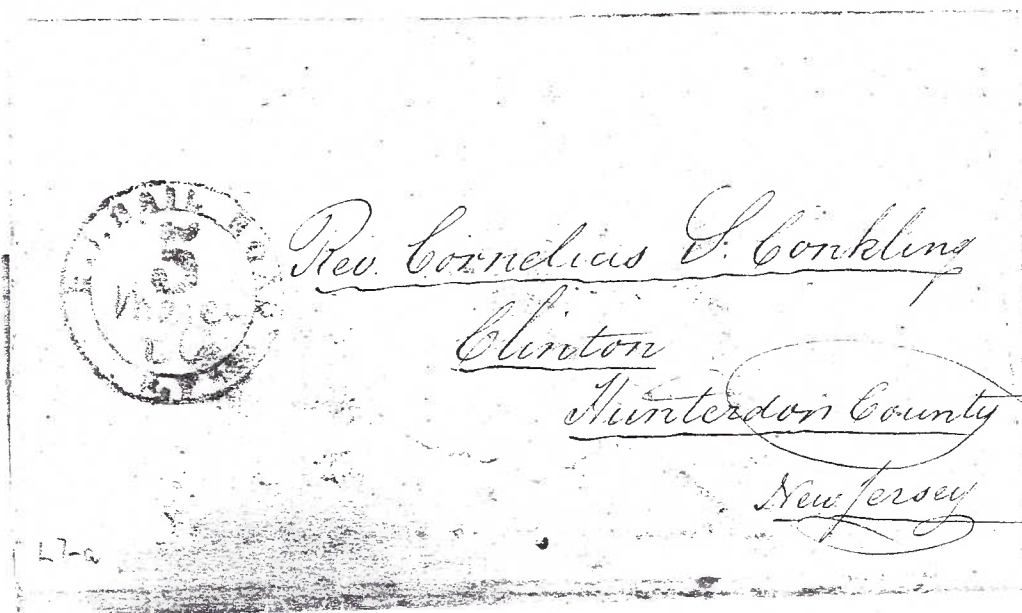 5
Rev. Cornelius S. Conkling
Clinton
Hunterdon County
New Jersey
L7-a